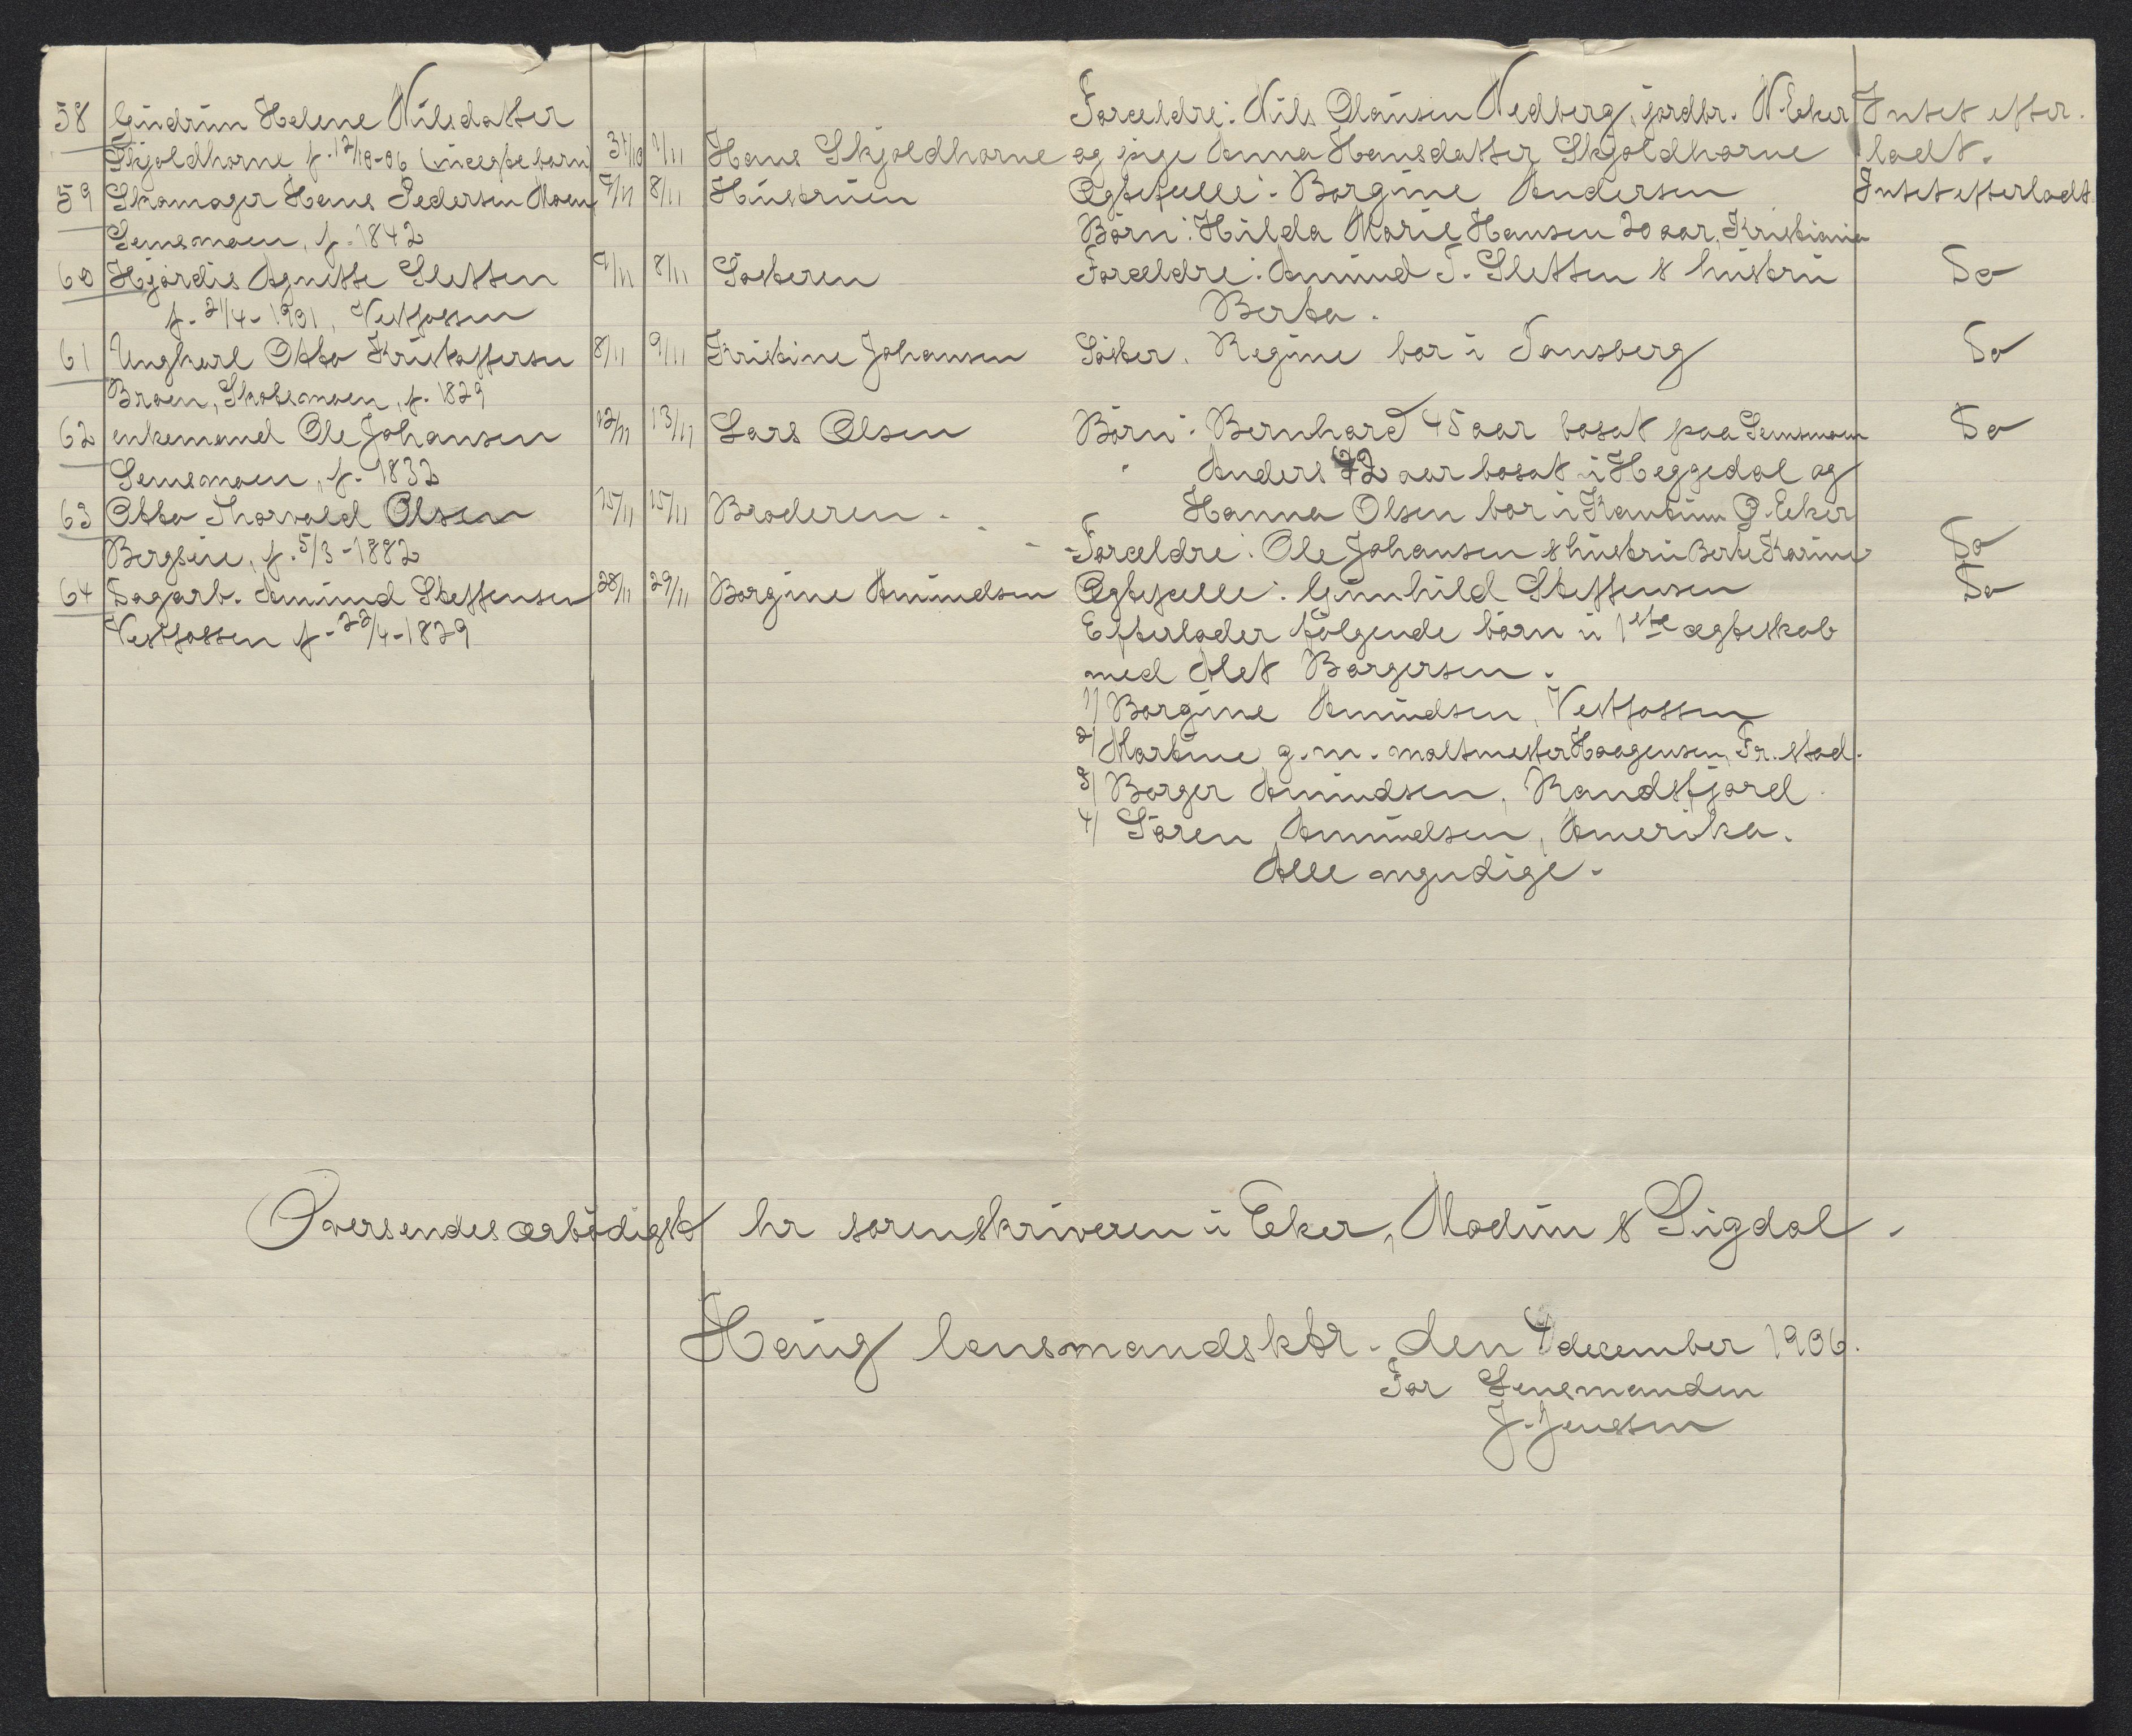 58 Gudrun Helene Nilsdatter Forældre: Nils Clausen Vedberg, jordbr. N. Eker Intet efter.
Skjoldhorne, f. 12/10-06 (uægte barn) 31/10 1/11 Hans Skjoldhorne og pige Anna Hansdatter Skjoldhorne ladt.
59 Skomager Hans Pedersen Moen 5/11 8/11 Hustruen Ægtefælle: Borgine Andersen Intet efterladt
Semsmoen, f. 1842 Børn: Hilda Marie Hansen 20 aar, Kristiania
60 Hjørdis Agnethe Sletten 7/11 8/11 Søsteren Forældre: Amund T. Sletten & hustru Do
f. 21/4-1901, Vestfossen Berta.
61 Ungkarl Otto Kristoffersen 8/11 9/11 Kristine Johansen Søster, Regine bor i Tønsberg Do
Broen, Skotsmoen, f. 1829
62 enkemand Ole Johansen 12/11 13/11 Lars Olsen Børn: Bernhard 45 aar bosat paa Semsmoen Do
Semsmoen, f. 1832 Anders 42 aar bosat i Heggedal og
63 Otto Thorvald Olsen 15/11 15/11 Broderen. Hanna Olsen bor i Ø. Eker
Bergsøie, f. 5/3-1882 Forældre: Ole Johansen & hustru Berte Karine Do
64 Dagarb. Amund Steffensen 28/11 29/11 Borgine Amundsen Ægtefælle: Gunhild Steffensen Do
Vestfossen f. 22/4-1829 Efterlader følgende børn i 1ste ægteskab
med Alet Borgersen.
1/ Borgine Amundsen, Vestfossen
2/ Martine g. m. maltmester Haagensen, Fr. stad.
3/ Borger Amundsen, Randsfjord.
4/ Søren Amundsen, Amerika.
Alle myndige.
Oversendes ærbødigst hr sorenskriveren i Eker, Modum & Sigdal.
Haug lensmandsktr. den 4 december 1906.
For Lensmanden
J. Jenssen